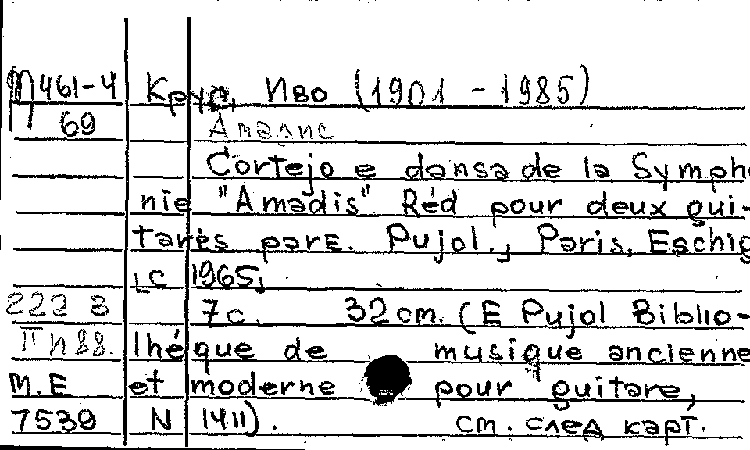 М461-4 Крус, Иво (1901 - 1985)
69 Амадис
Cortejo e dansa de la Sympho
nie "Amadis" Réd pour deux gui-
tares par E. Pujol., Paris, Eschig
[c 1965]
222 8 7с. 32 cm. (E Pujol Biblio-
П п 88. lhéque de musique ancienne
M.E et moderne pour guitare,
7539 N 1411). см. след карт.